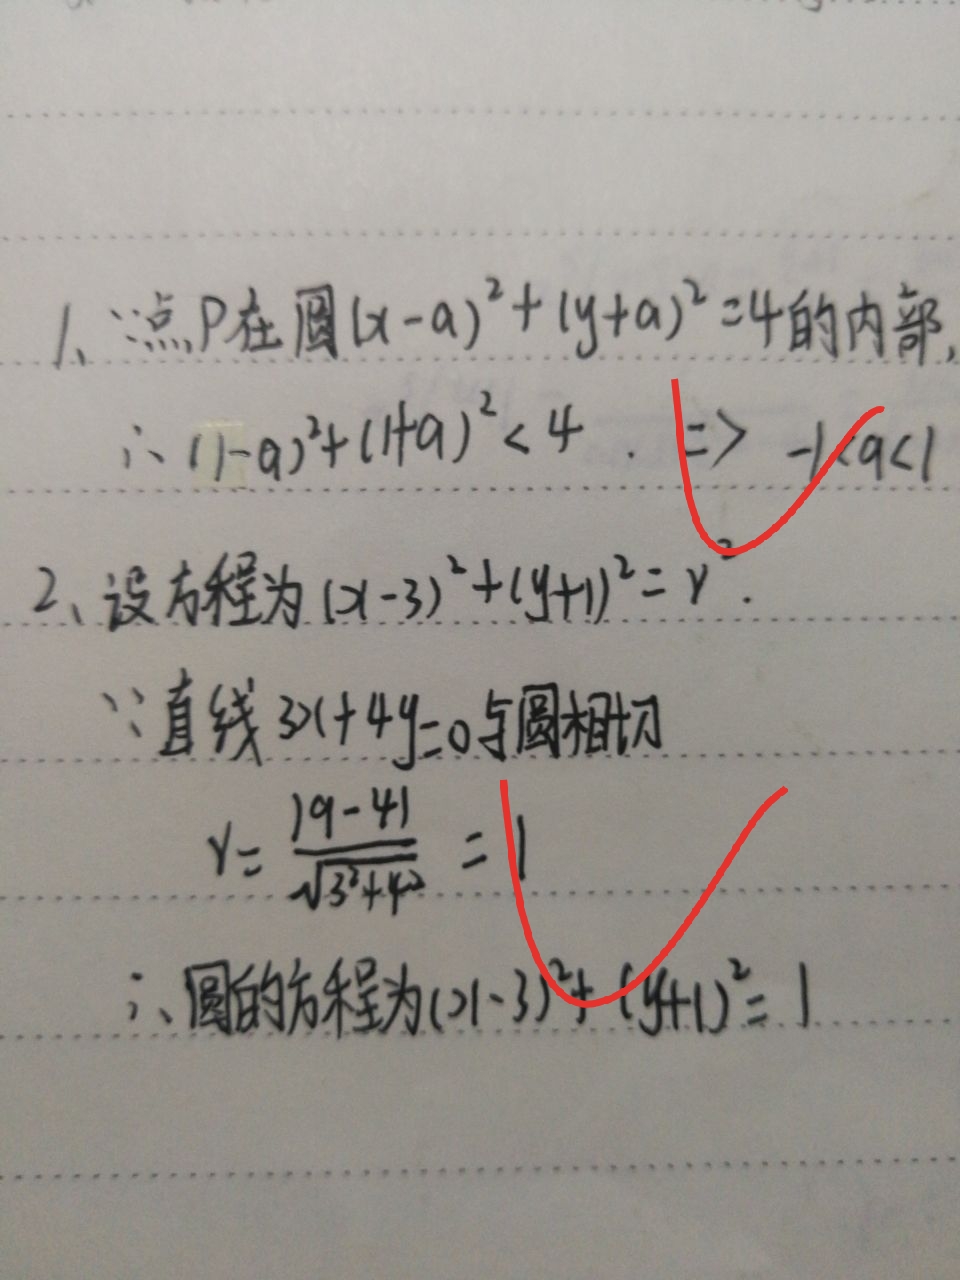 1、∵点P在圆(x-a)²+(y+a)²=4的内部,
∴(1-a)²+(1+a)²<4. => -1<a<1
2、设方程为(x-3)²+(y+1)²=r².
∵直线3x+4y=0与圆相切
r=|9-4|/√3²+4² =1
∴圆的方程为(x-3)²+(y+1)²=1